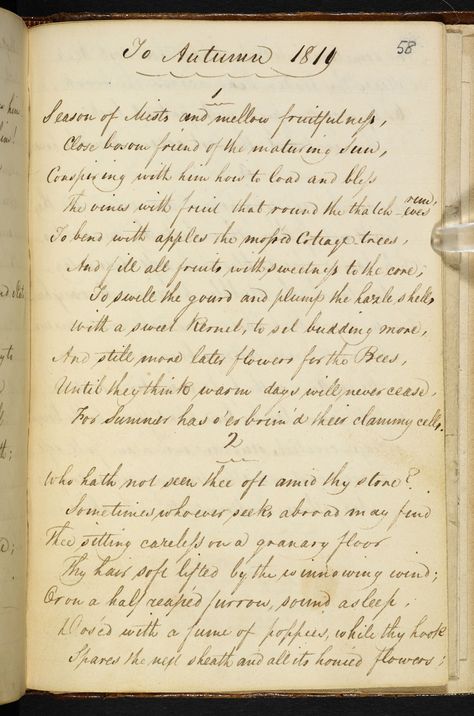 58
To Autumn 1819
1
Season of Mists and mellow fruitfulness,
Close bosom friend of the maturing Sun,
Conspiring with him how to load and bless
The vines with fruit that round the thatch-eves run,
To bend with apples the moss'd Cottage trees,
And fill all fruits with sweetness to the core;
To swell the gourd and plump the hazle shells
With a sweet kernel, to set budding more,
And still more later flowers for the Bees,
Until they think warm days will never cease,
For Summer has o'er brim'd their clammy cells.
2
Who hath not seen thee oft amid thy store?
Sometimes whoever seeks abroad may find
Thee sitting careless on a granary floor
Thy hair soft lifted by the winnowing wind;
Or on a half reaped furrow, sound asleep,
Dos'd with a fume of poppies, while thy hook
Spares the next sheath and all its honied flowers;